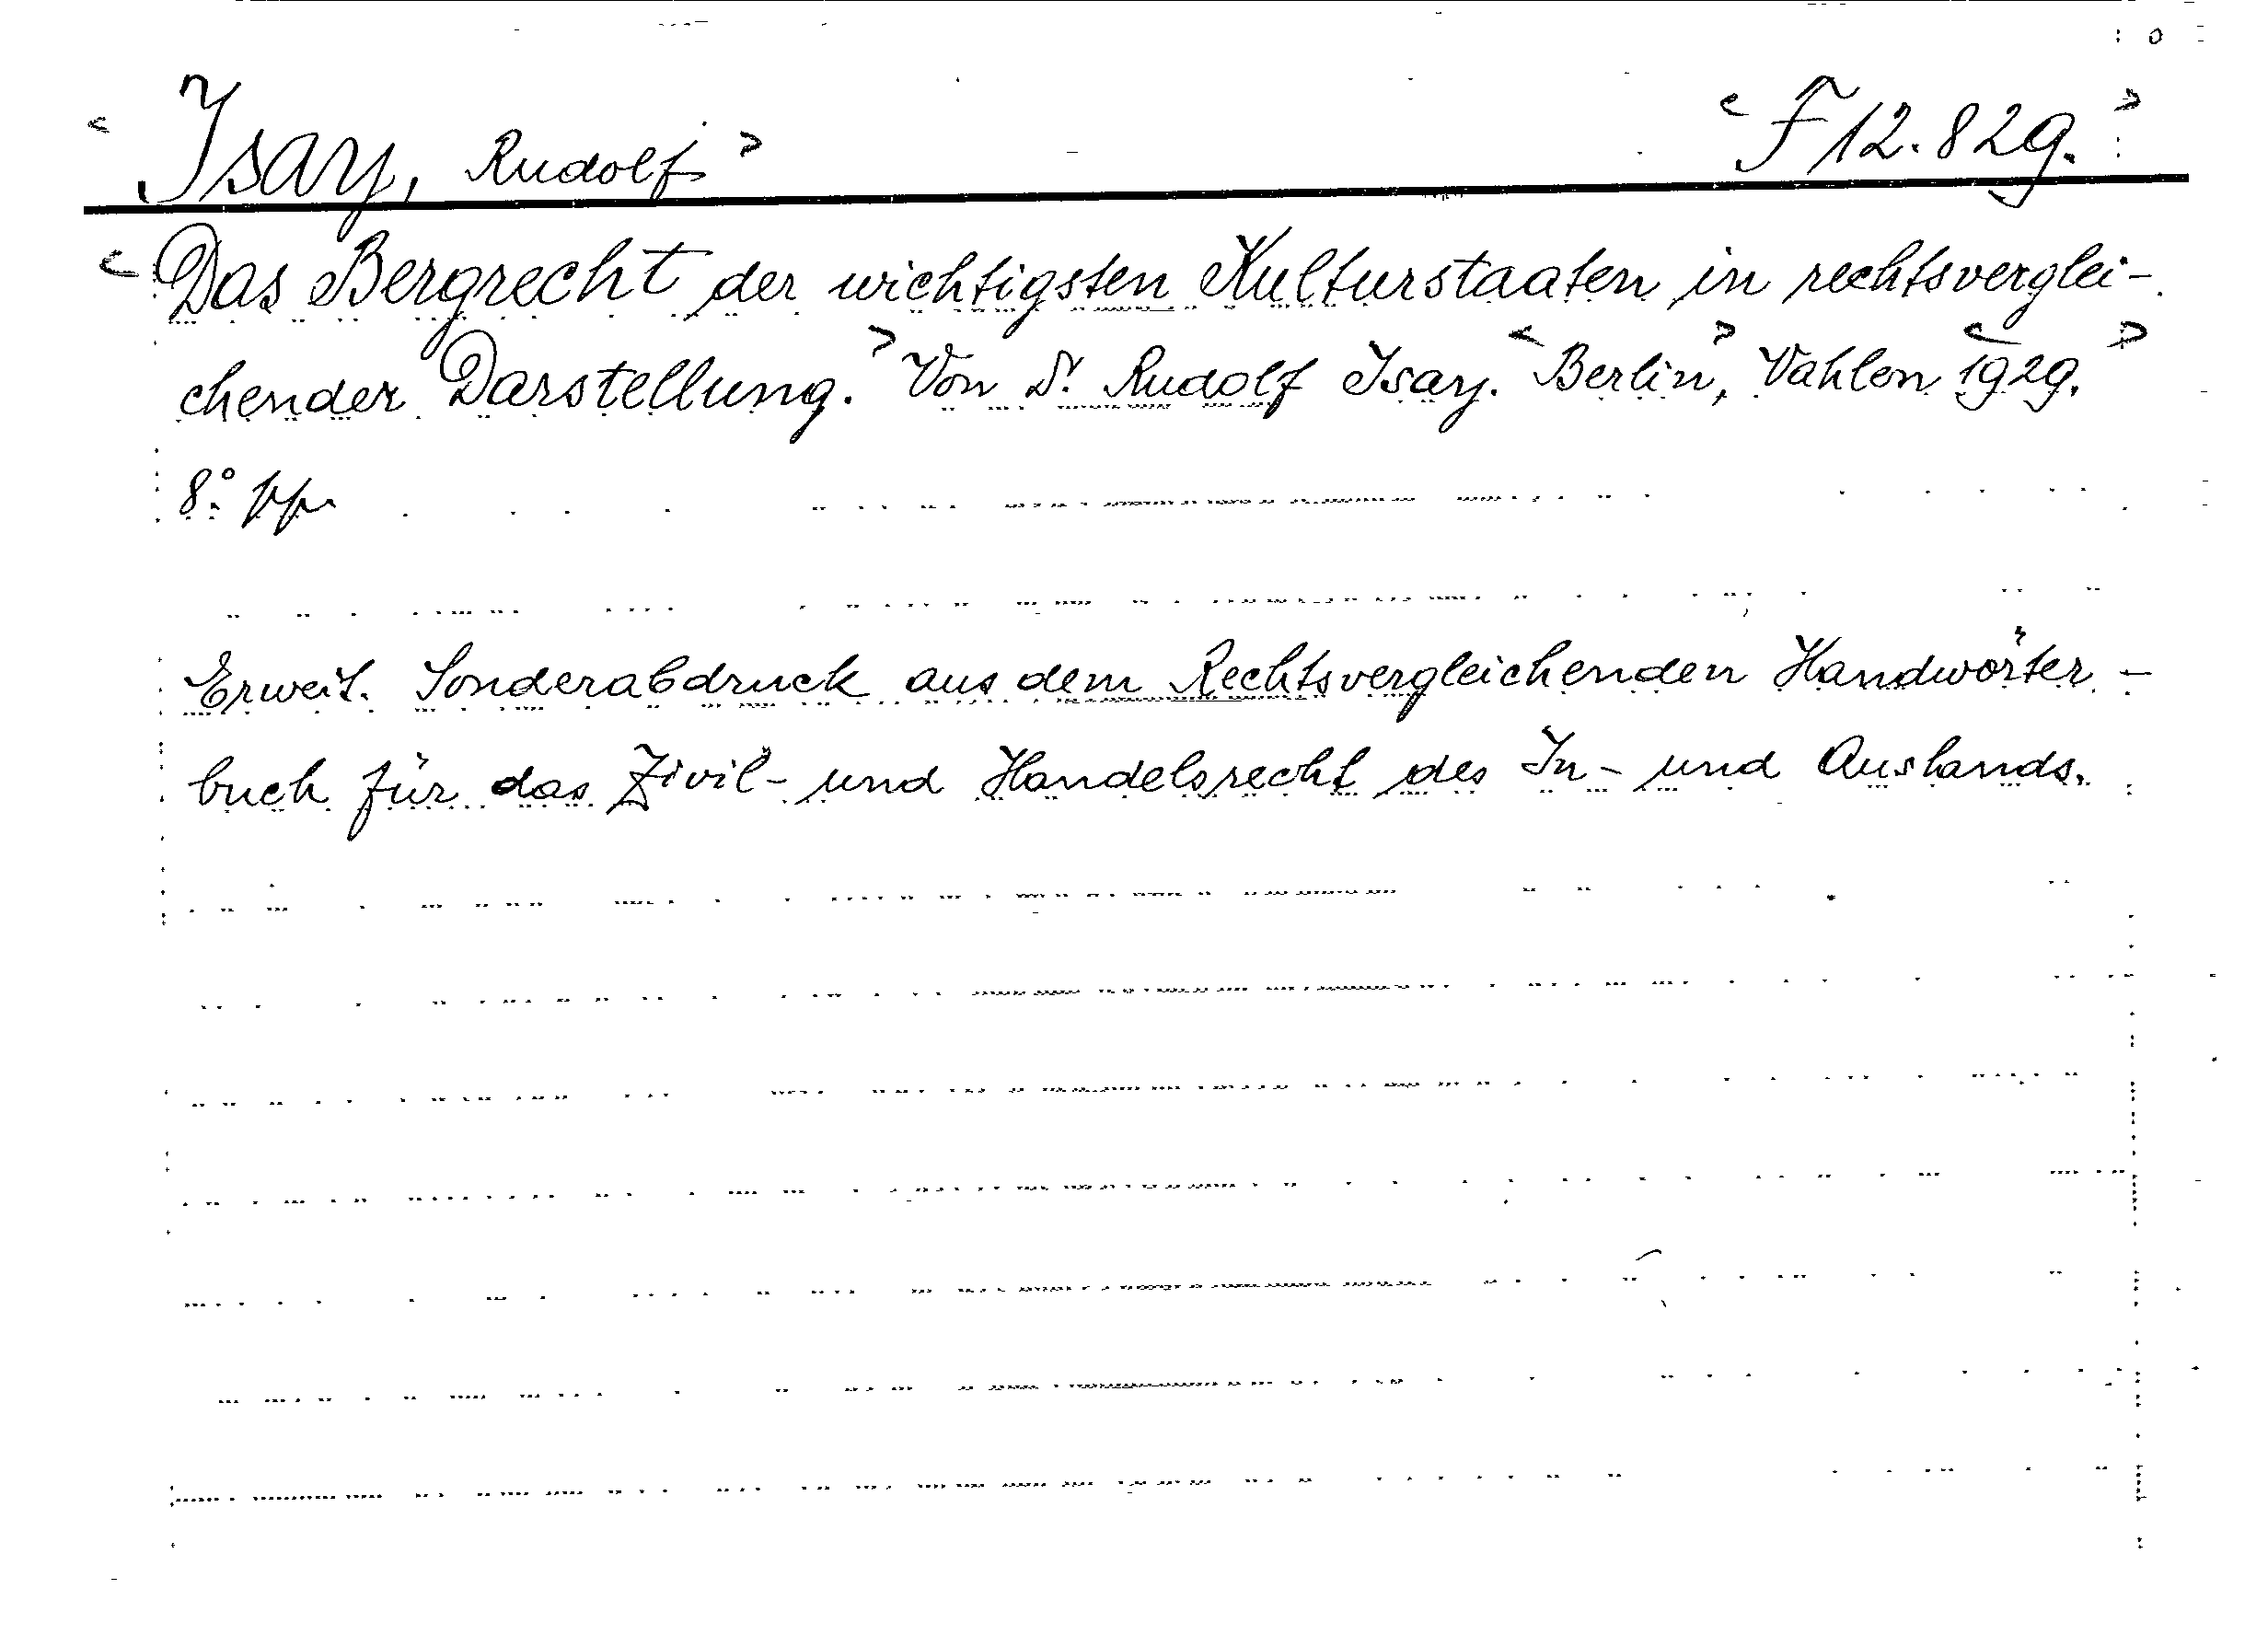 < Isay, Rudolf > < F 12.829. >
< Das Bergrecht der wichtigsten Kulturstaaten in rechtsverglei-
chender Darstellung. > Von Dr. Rudolf Isay. < Berlin >, Vahlen < 1929. >
8°. pp.
Erweit. Sonderabdruck aus dem Rechtsvergleichenden Handwörter-
buch für das Zivil- und Handelsrecht des In- und Auslands.